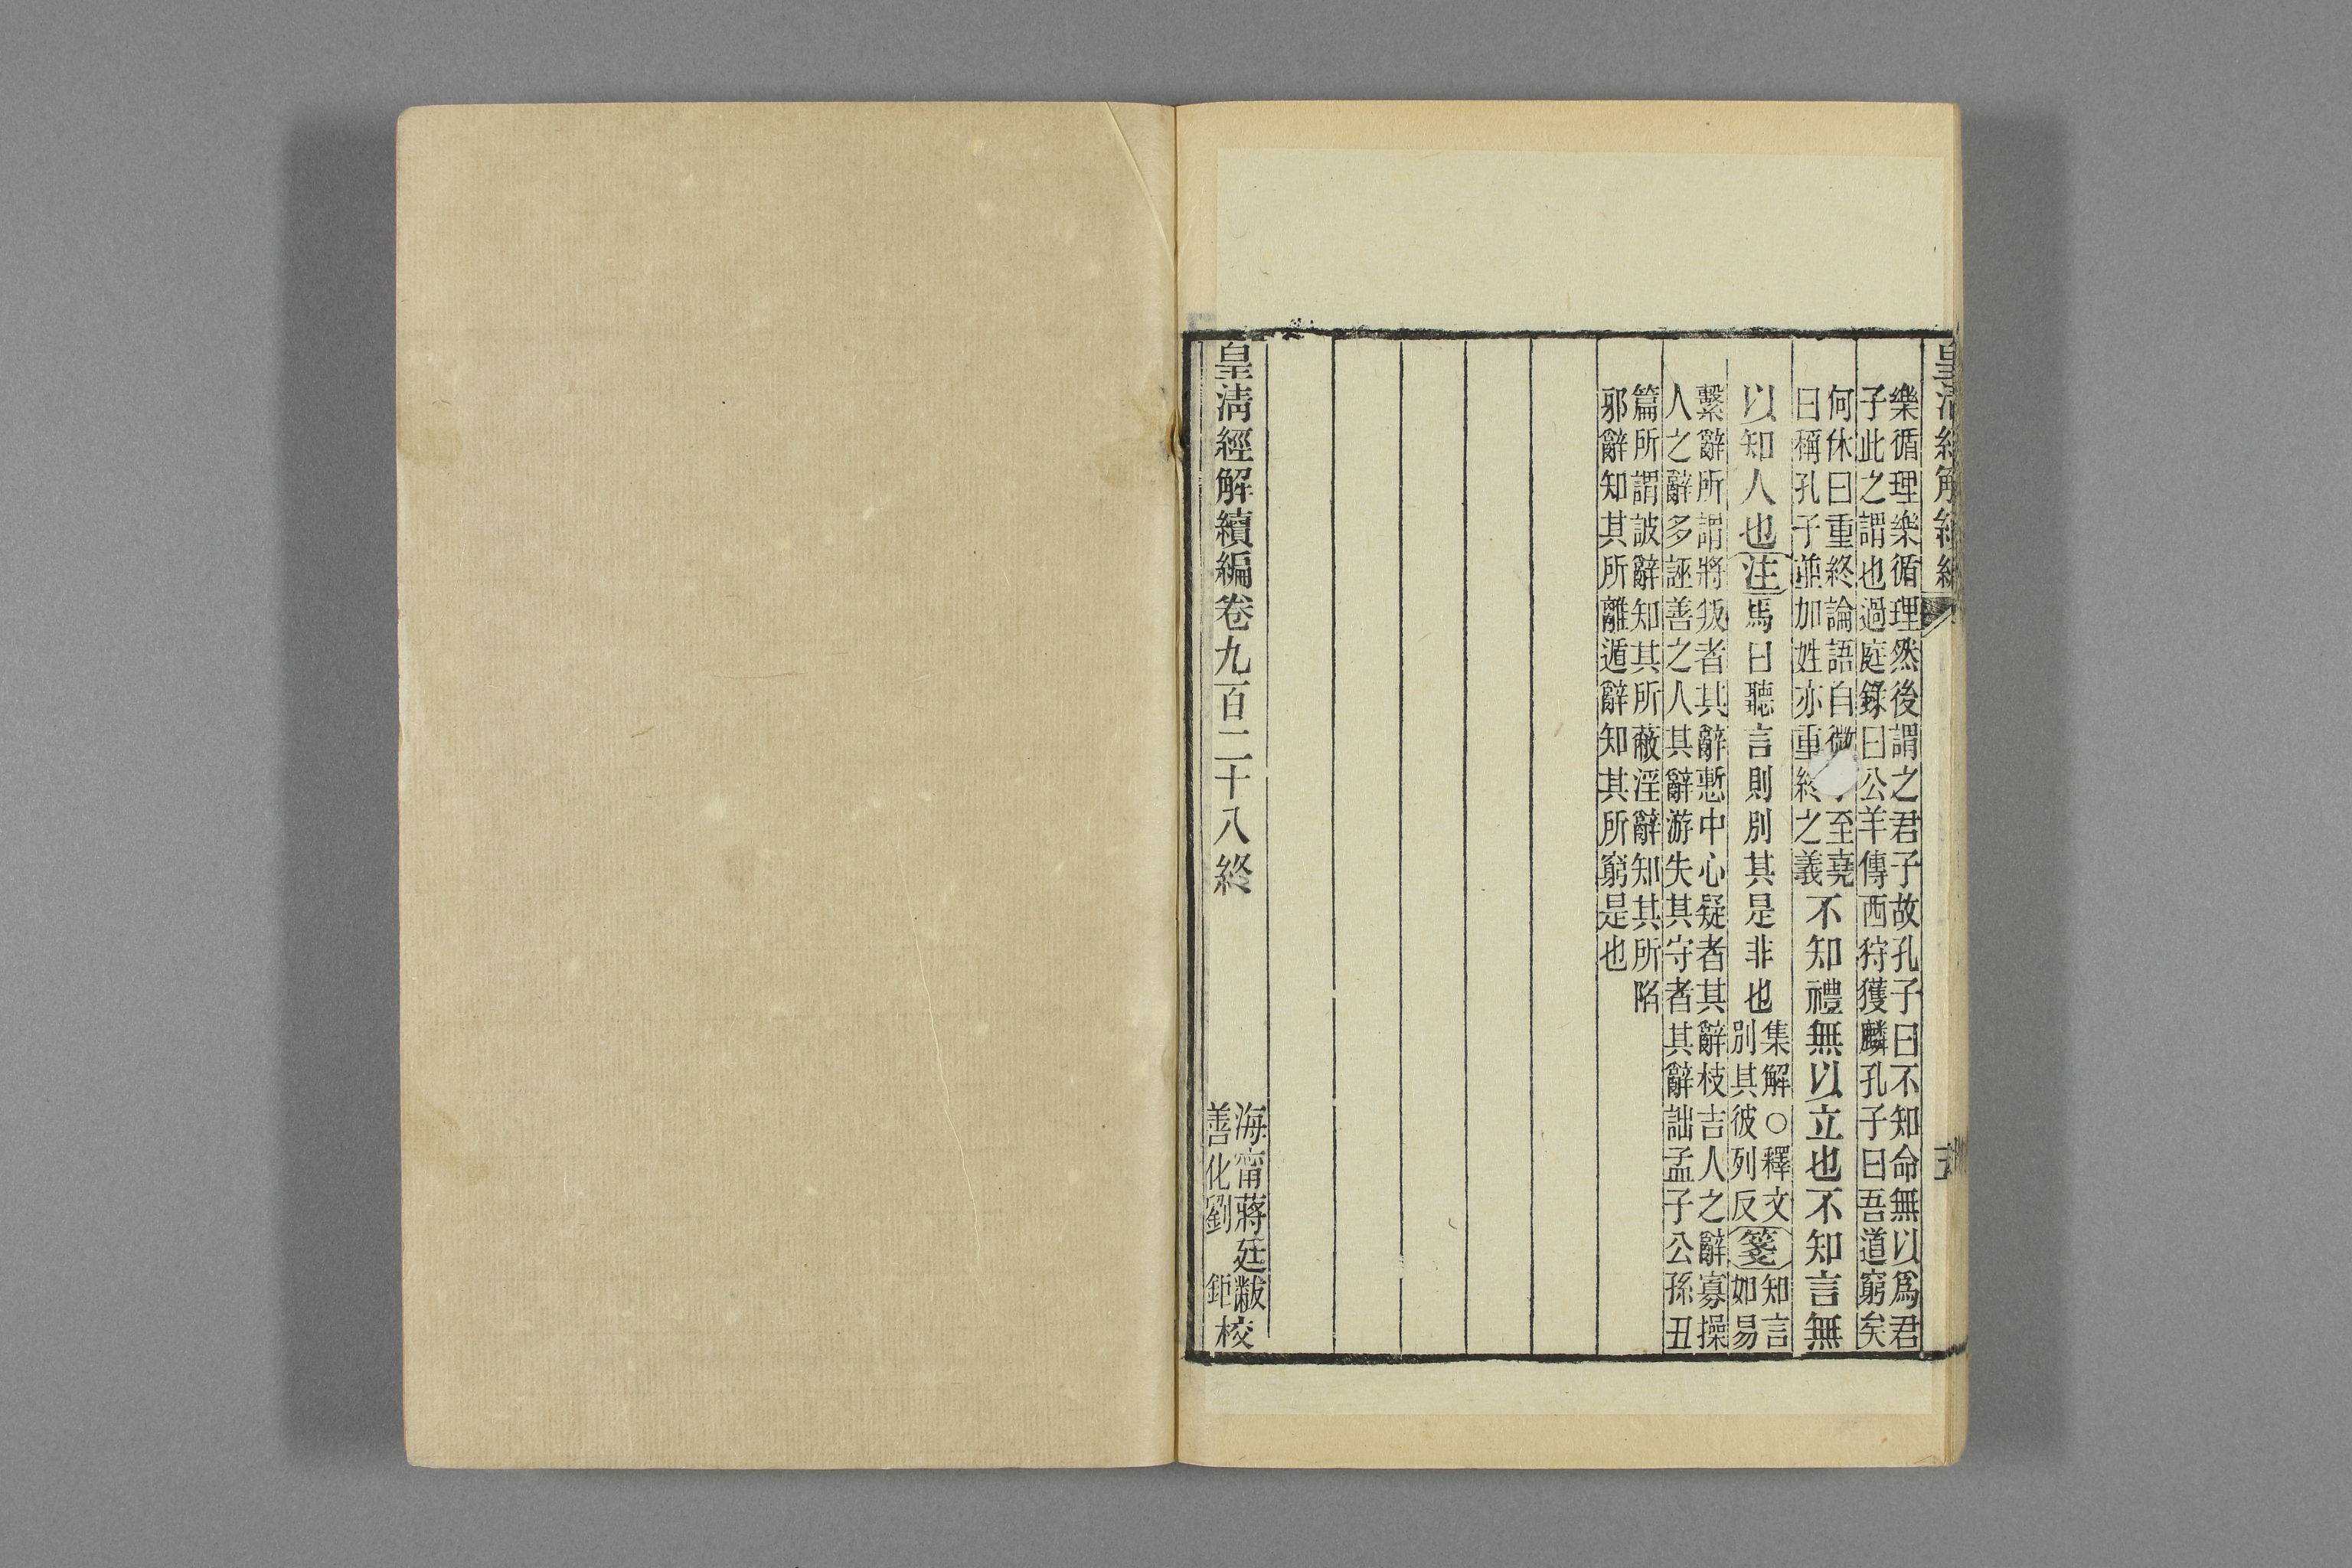 皇清經解續編
樂循理樂循理然後謂之君子故孔子曰不知命無以爲君
子此之謂也過庭錄曰公羊傳西狩獲麟孔子曰吾道窮矣
何休曰重終論語自微子至堯
曰稱孔子並加姓亦重終之義
不知禮無以立也不知言無
以知人也注馬曰聽言則別其是非也
集解○釋文
別其彼列反
箋
知言
如易
繫辭所謂將叛者其辭慙中心疑者其辭枝吉人之辭寡操
人之辭多誣善之人其辭游失其守者其辭詘孟子公孫丑
篇所謂詖辭知其所蔽淫辭知其所陷
邪辭知其所離遁辭知其所窮是也
皇清經解續編卷九百二十八終
海甯蔣廷黻
善化劉鉅
校